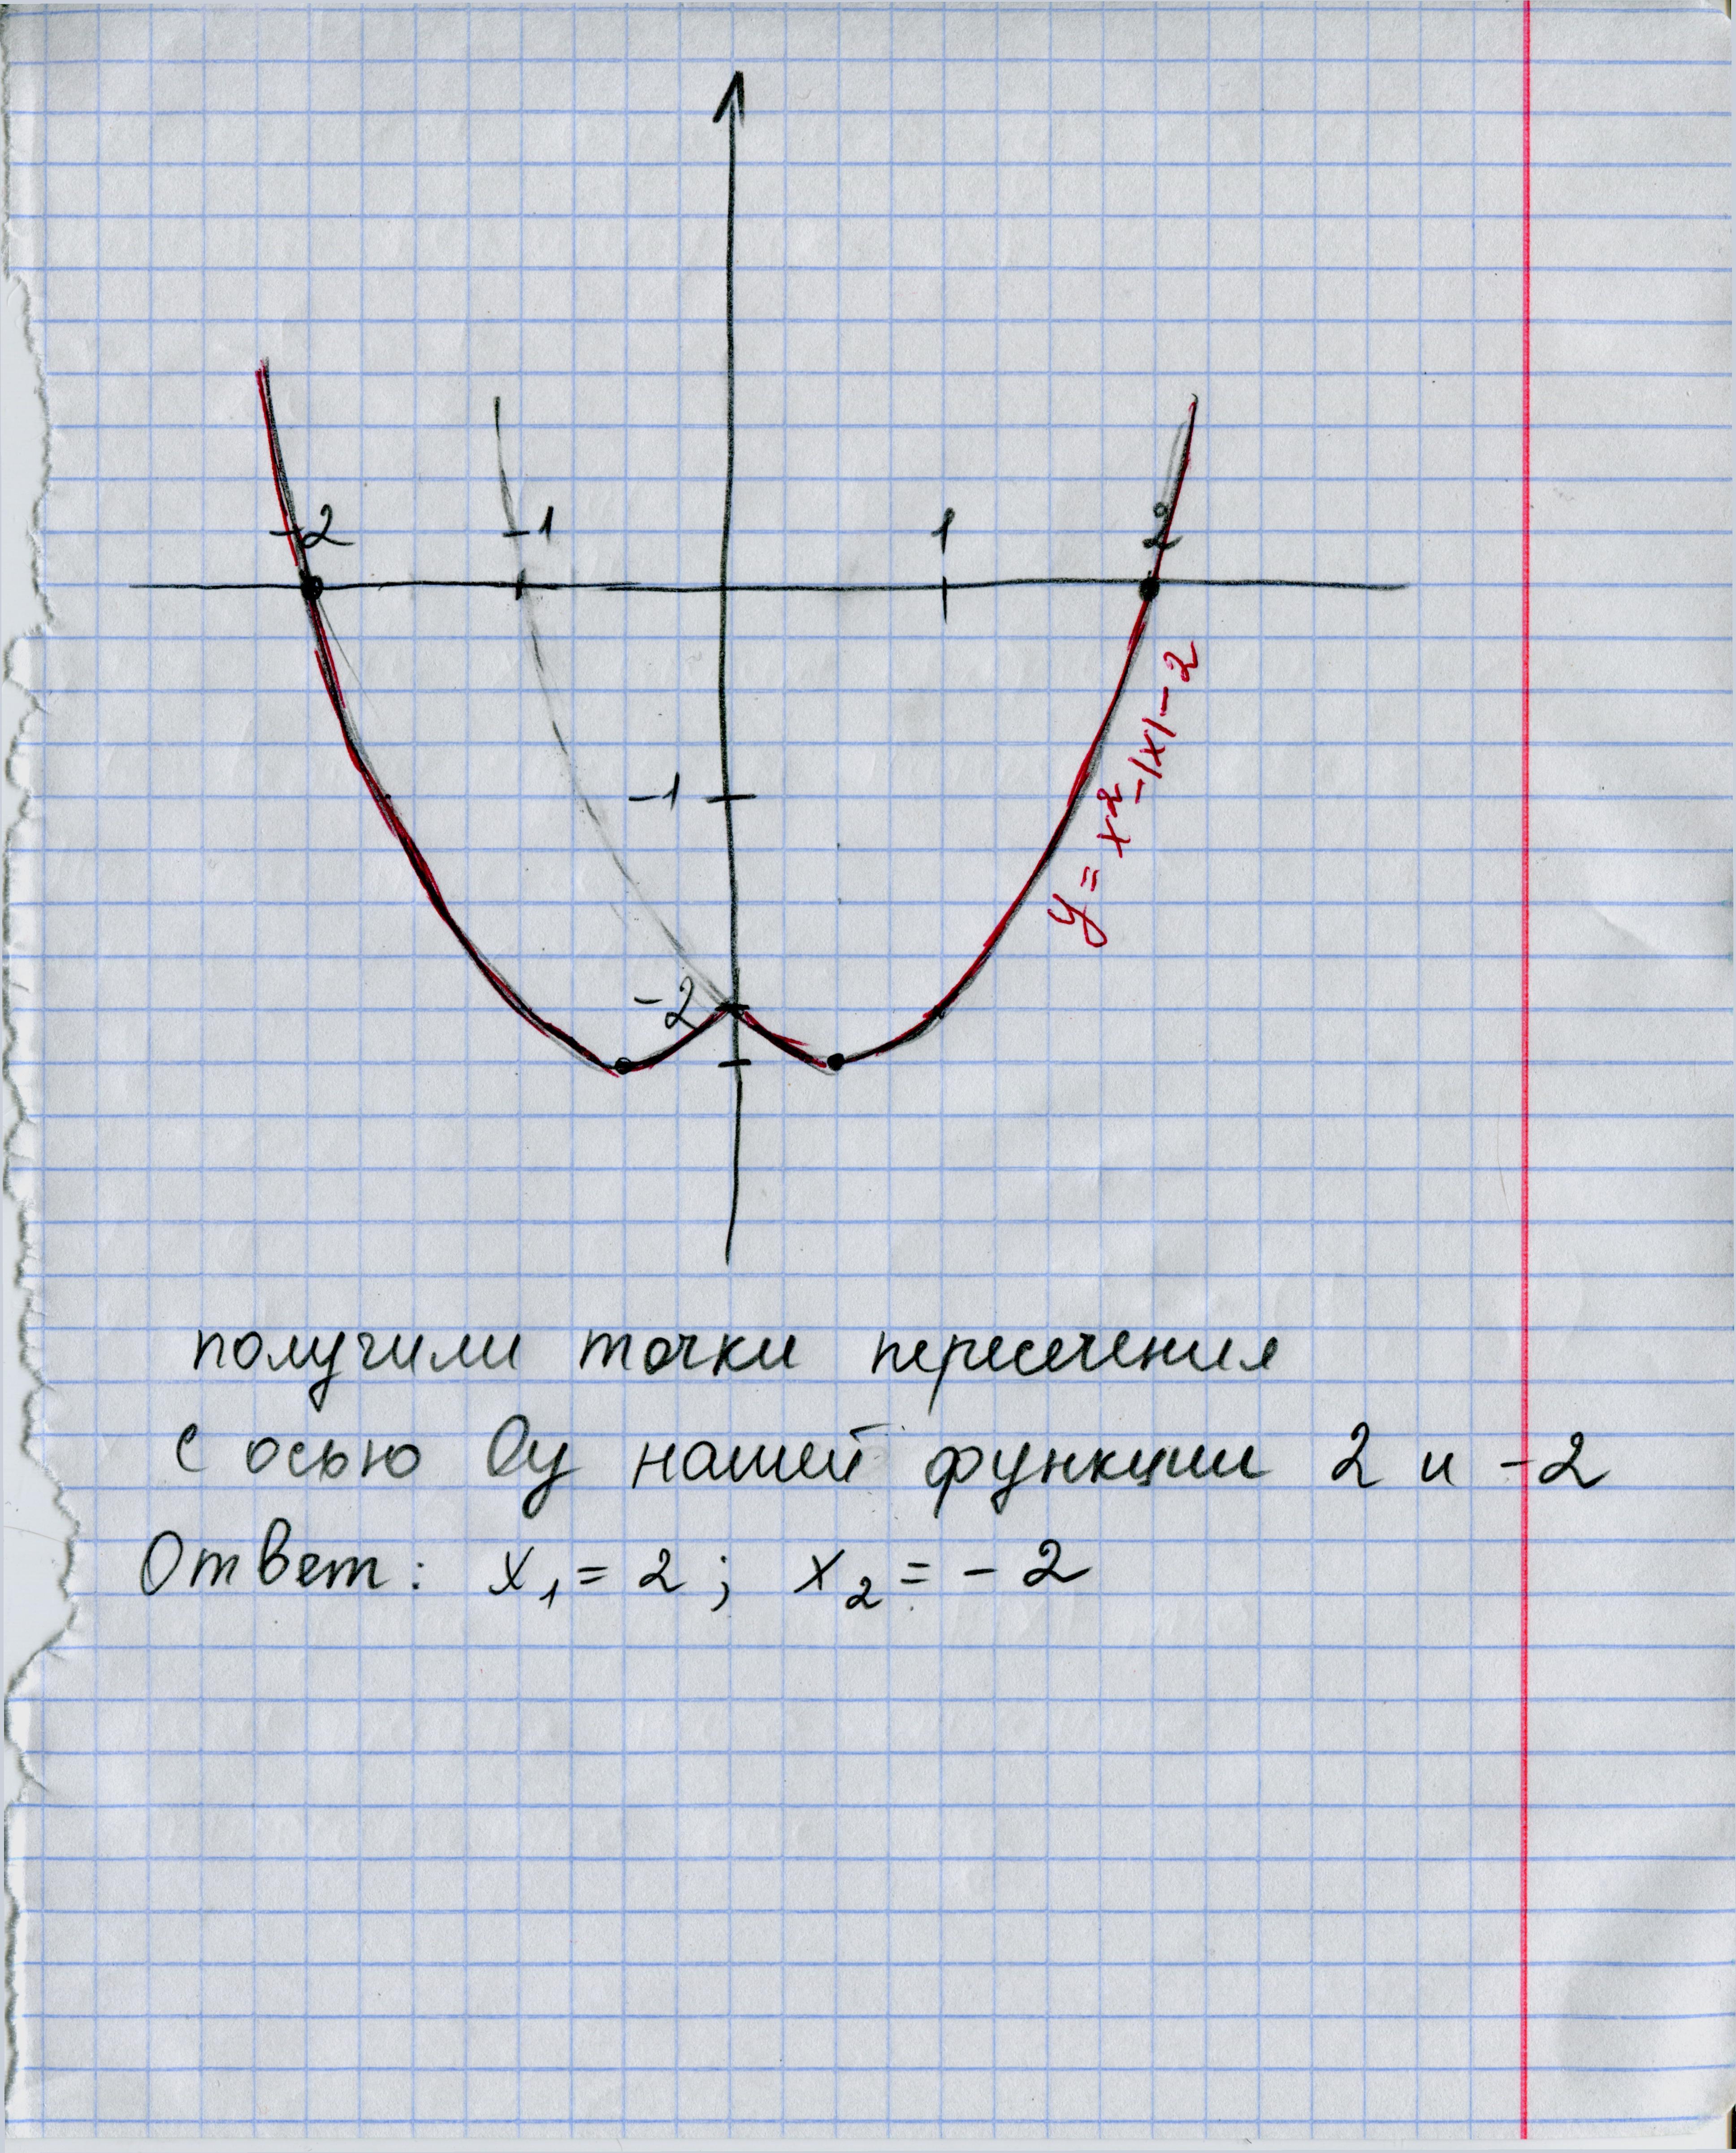 -2
-1
1
2
y = x² - |x| - 2
-1
-2
получили точки пересечения
с осью Оу нашей функции 2 и -2
Ответ: x₁ = 2; x₂ = -2